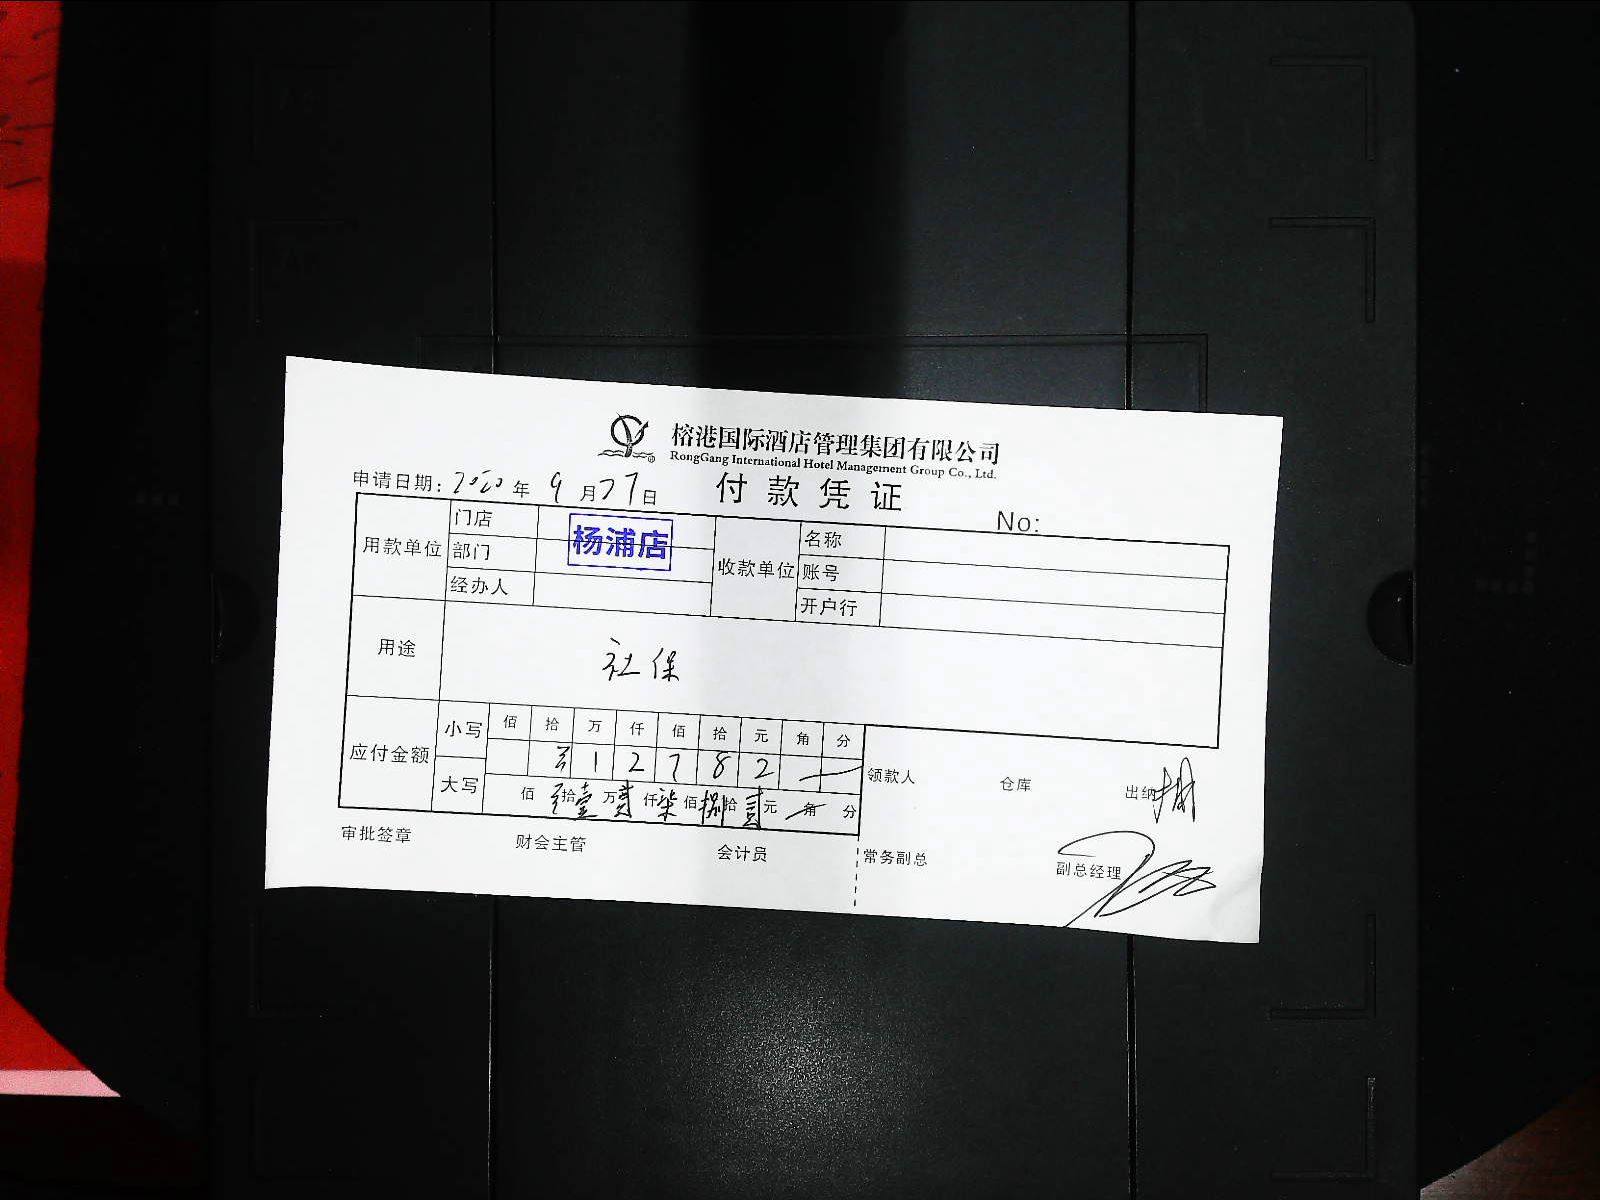 榕港国际酒店管理集团有限公司
RongGang International Hotel Management Group Co., Ltd.
申请日期: 2020 年 9 月 27 日
付款凭证
No:
用款单位 门店 杨浦店
部门
经办人
收款单位 名称
账号
开户行
用途 社保
应付金额 小写 佰 拾 万 仟 佰 拾 元 角 分
1 2 7 8 2
大写 佰 拾 壹 万 贰 仟 柒 佰 捌 拾 贰 元 角 分
领款人 仓库 出纳
审批签章 财会主管 会计员 常务副总 副总经理